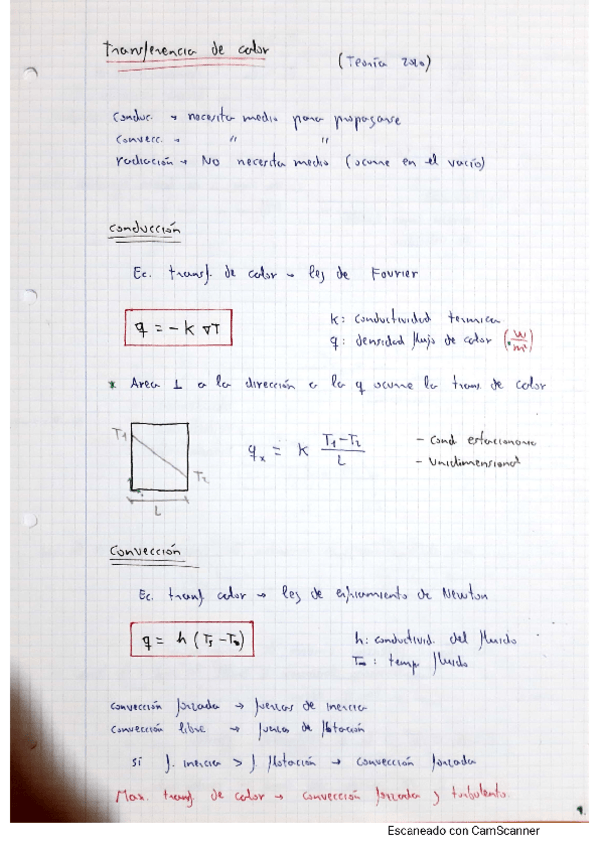 Transferencia de calor
(Teoría 2010)
Conduc. → necesita medio para propagarse
Convecc. → " "
radiación → No necesita medio (ocurre en el vacío)
Conducción
Ec. transf. de calor → ley de Fourier
q = -k ∇T
k: conductividad termica
q: densidad flujo de calor (w/m²)
* Area ⊥ a la dirección a la q ocurre la trans. de calor
T1
T2
L
qx = k (T1-T2)/L
- Cond estacionario
- Unidimensional
Convección
Ec. transf calor → ley de enfriamiento de Newton
q = h (Ts - T∞)
h: conductivid. del fluido
T∞: temp fluido
convección forzada → fuerzas de inercia
convección libre → fuerzas de flotación
Si f. inercia > f. flotación → convección forzada
Max. transf. de calor → convección forzada y turbulento
1.
Escaneado con CamScanner